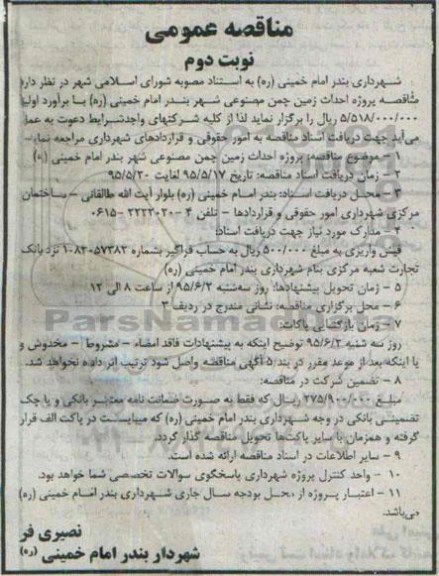 مناقصه عمومی
نوبت دوم
شهرداری بندر امام خمینی (ره) به استناد مصوبه شورای اسلامی شهر در نظر دارد
مناقصه پروژه احداث زمین چمن مصنوعی شهر بندر امام خمینی (ره) با برآورد اولیه
۵/۵۱۸/۰۰۰/۰۰۰ ریال را برگزار نماید لذا از کلیه شرکتهای واجدشرایط دعوت به عمل
می‌آید جهت دریافت اسناد مناقصه به امور حقوقی و قراردادهای شهرداری مراجعه نمایند
۱ – موضوع مناقصه: پروژه احداث زمین چمن مصنوعی شهر بندر امام خمینی (ره)
۲ – زمان دریافت اسناد مناقصه: تاریخ ۹۵/۵/۱۷ لغایت ۹۵/۵/۲۰
۳ – محل دریافت اسناد: بندر امام خمینی (ره) بلوار آیت الله طالقانی – ساختمان
مرکزی شهرداری امور حقوقی و قراردادها – تلفن ۴–۲۲۲۲۰۲۰–۰۶۱۵
۴ – مدارک مورد نیاز جهت دریافت اسناد:
فیش واریزی به مبلغ ۵۰۰/۰۰۰ ریال به حساب فراگیر بشماره ۱۰۸۲۰۵۷۳۸۲ نزد بانک
تجارت شعبه مرکزی بنام شهرداری بندر امام خمینی (ره)
۵ – زمان تحویل پیشنهادها: روز سه‌شنبه ۹۵/۶/۲ از ساعت ۸ الی ۱۲
۶ – محل برگزاری مناقصه: نشانی مندرج در ردیف ۳
۷ – زمان بازگشایی پاکات:
روز سه شنبه ۹۵/۶/۲ توضیح اینکه به پیشنهادات فاقد امضاء – مشروط – مخدوش و
یا اینکه بعد از موعد مقرر در بند ۵ آگهی مناقصه واصل شود ترتیب اثر داده نخواهد شد.
۸ – تضمین شرکت در مناقصه:
مبلغ ۲۷۵/۹۰۰/۰۰۰ ریال که فقط به صورت ضمانت نامه معتبر بانکی و یا چک
تضمینی بانکی در وجه شهرداری بندر امام خمینی (ره) که میبایست در پاکت الف قرار
گرفته و همزمان با سایر پاکت‌ها تحویل مناقصه گذار گردد.
۹ – سایر اطلاعات در اسناد مناقصه ارائه شده است.
۱۰ – واحد کنترل پروژه شهرداری پاسخگوی سوالات تخصصی شما خواهد بود.
۱۱ – اعتبار پروژه از محل بودجه سال جاری شهرداری بندر امام خمینی (ره)
می‌باشد.
نصیری فر
شهردار بندر امام خمینی (ره)
ParsNamad